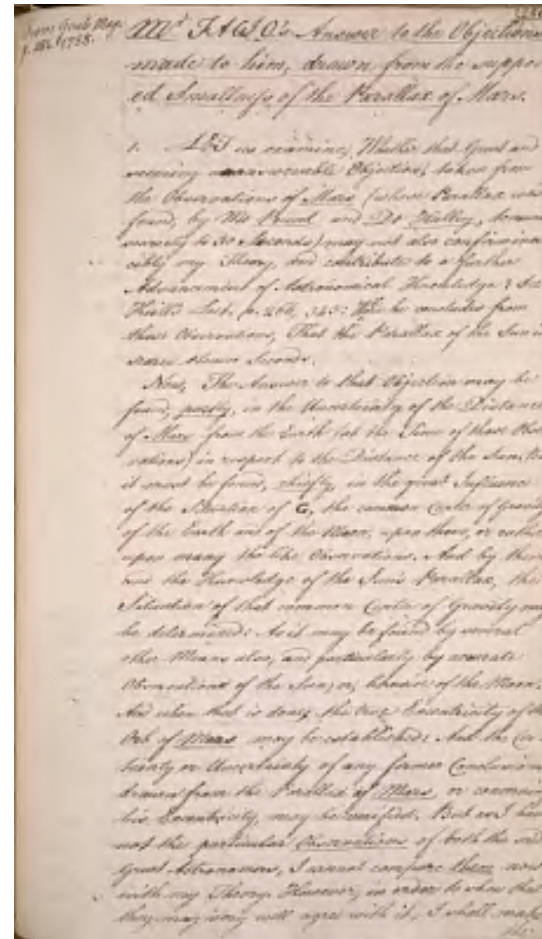 From Gent. Mag.
1738.
Mr. FACIO's Answer to the Objections
made to him, drawn from the suppos
ed Smallness of the Parallax of Mars.
1. LET us examine, Whether that Great and
seeming unanswerable Objection, taken from
the Observations of Mars (whose Parallax was
found, by Mr Pound and Dr Halley, to
to 30 Seconds) may not also confirm
my Theory, and contribute to a further
Advancement of Astronomical Knowledge
Keill's Lect. p. 266, 343: he concludes from
those Observations, That the Parallax of the Sun is
Seconds.
Now, The Answer to that Objection may be
found, partly, in the Uncertainty of the Distance
of Mars from the Earth (at the Time of those Obser
vations) in respect to the Distance of the Sun. But
it must be found, chiefly, in the great Influence
of the Situation of G, the common Center of Gravity
of the Earth and of the Moon, upon those, or rather
upon many the like Observations. And by them
and the Knowledge of the Sun's Parallax, the
Situation of that common Center of Gravity may
be determined: As it may be found by several
other Means also, and particularly by accurate
Observations of the Sun, or, of the Moon.
And when that is done, the true Eccentricity of the
Orb of Mars may be established: And the Cer
tainty or Uncertainty of any former Conclusions
drawn from the Parallax of Mars, or concerning
his Eccentricity, may be verified. But as I have
not the particular Observations of both the said
Great Astronomers, I cannot compare them now
with my Theory. However, in order to shew that
they may very well agree with it, I shall make
the